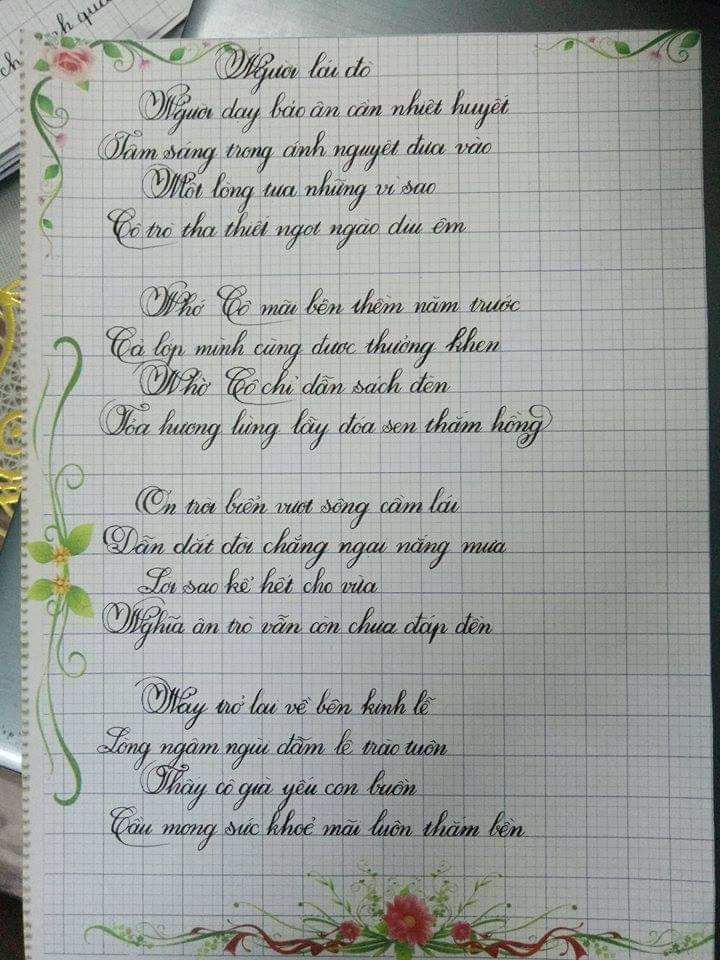 ch ch qu
Người lái đò
Người dạy bảo ân cần nhiệt huyết
Tâm sáng trong ánh nguyệt đưa vào
Một lòng tựa những vì sao
Cô trò tha thiết ngọt ngào dịu êm
Nhớ Cô mãi bên thềm năm trước
Cả lớp mình cùng được thưởng khen
Nhờ Cô chỉ dẫn sách đèn
Tỏa hương lừng lẫy đóa sen thắm hồng
Ơn trời biển vượt sông cầm lái
Dẫn dắt đời chẳng ngại nắng mưa
Lời sao kể hết cho vừa
Nghĩa ân trò vẫn còn chưa đáp đền
Nay trở lại về bên kính lễ
Lòng ngậm ngùi đẫm lệ trào tuôn
Thấy cô già yếu con buồn
Cầu mong sức khoẻ mãi luôn thắm bền